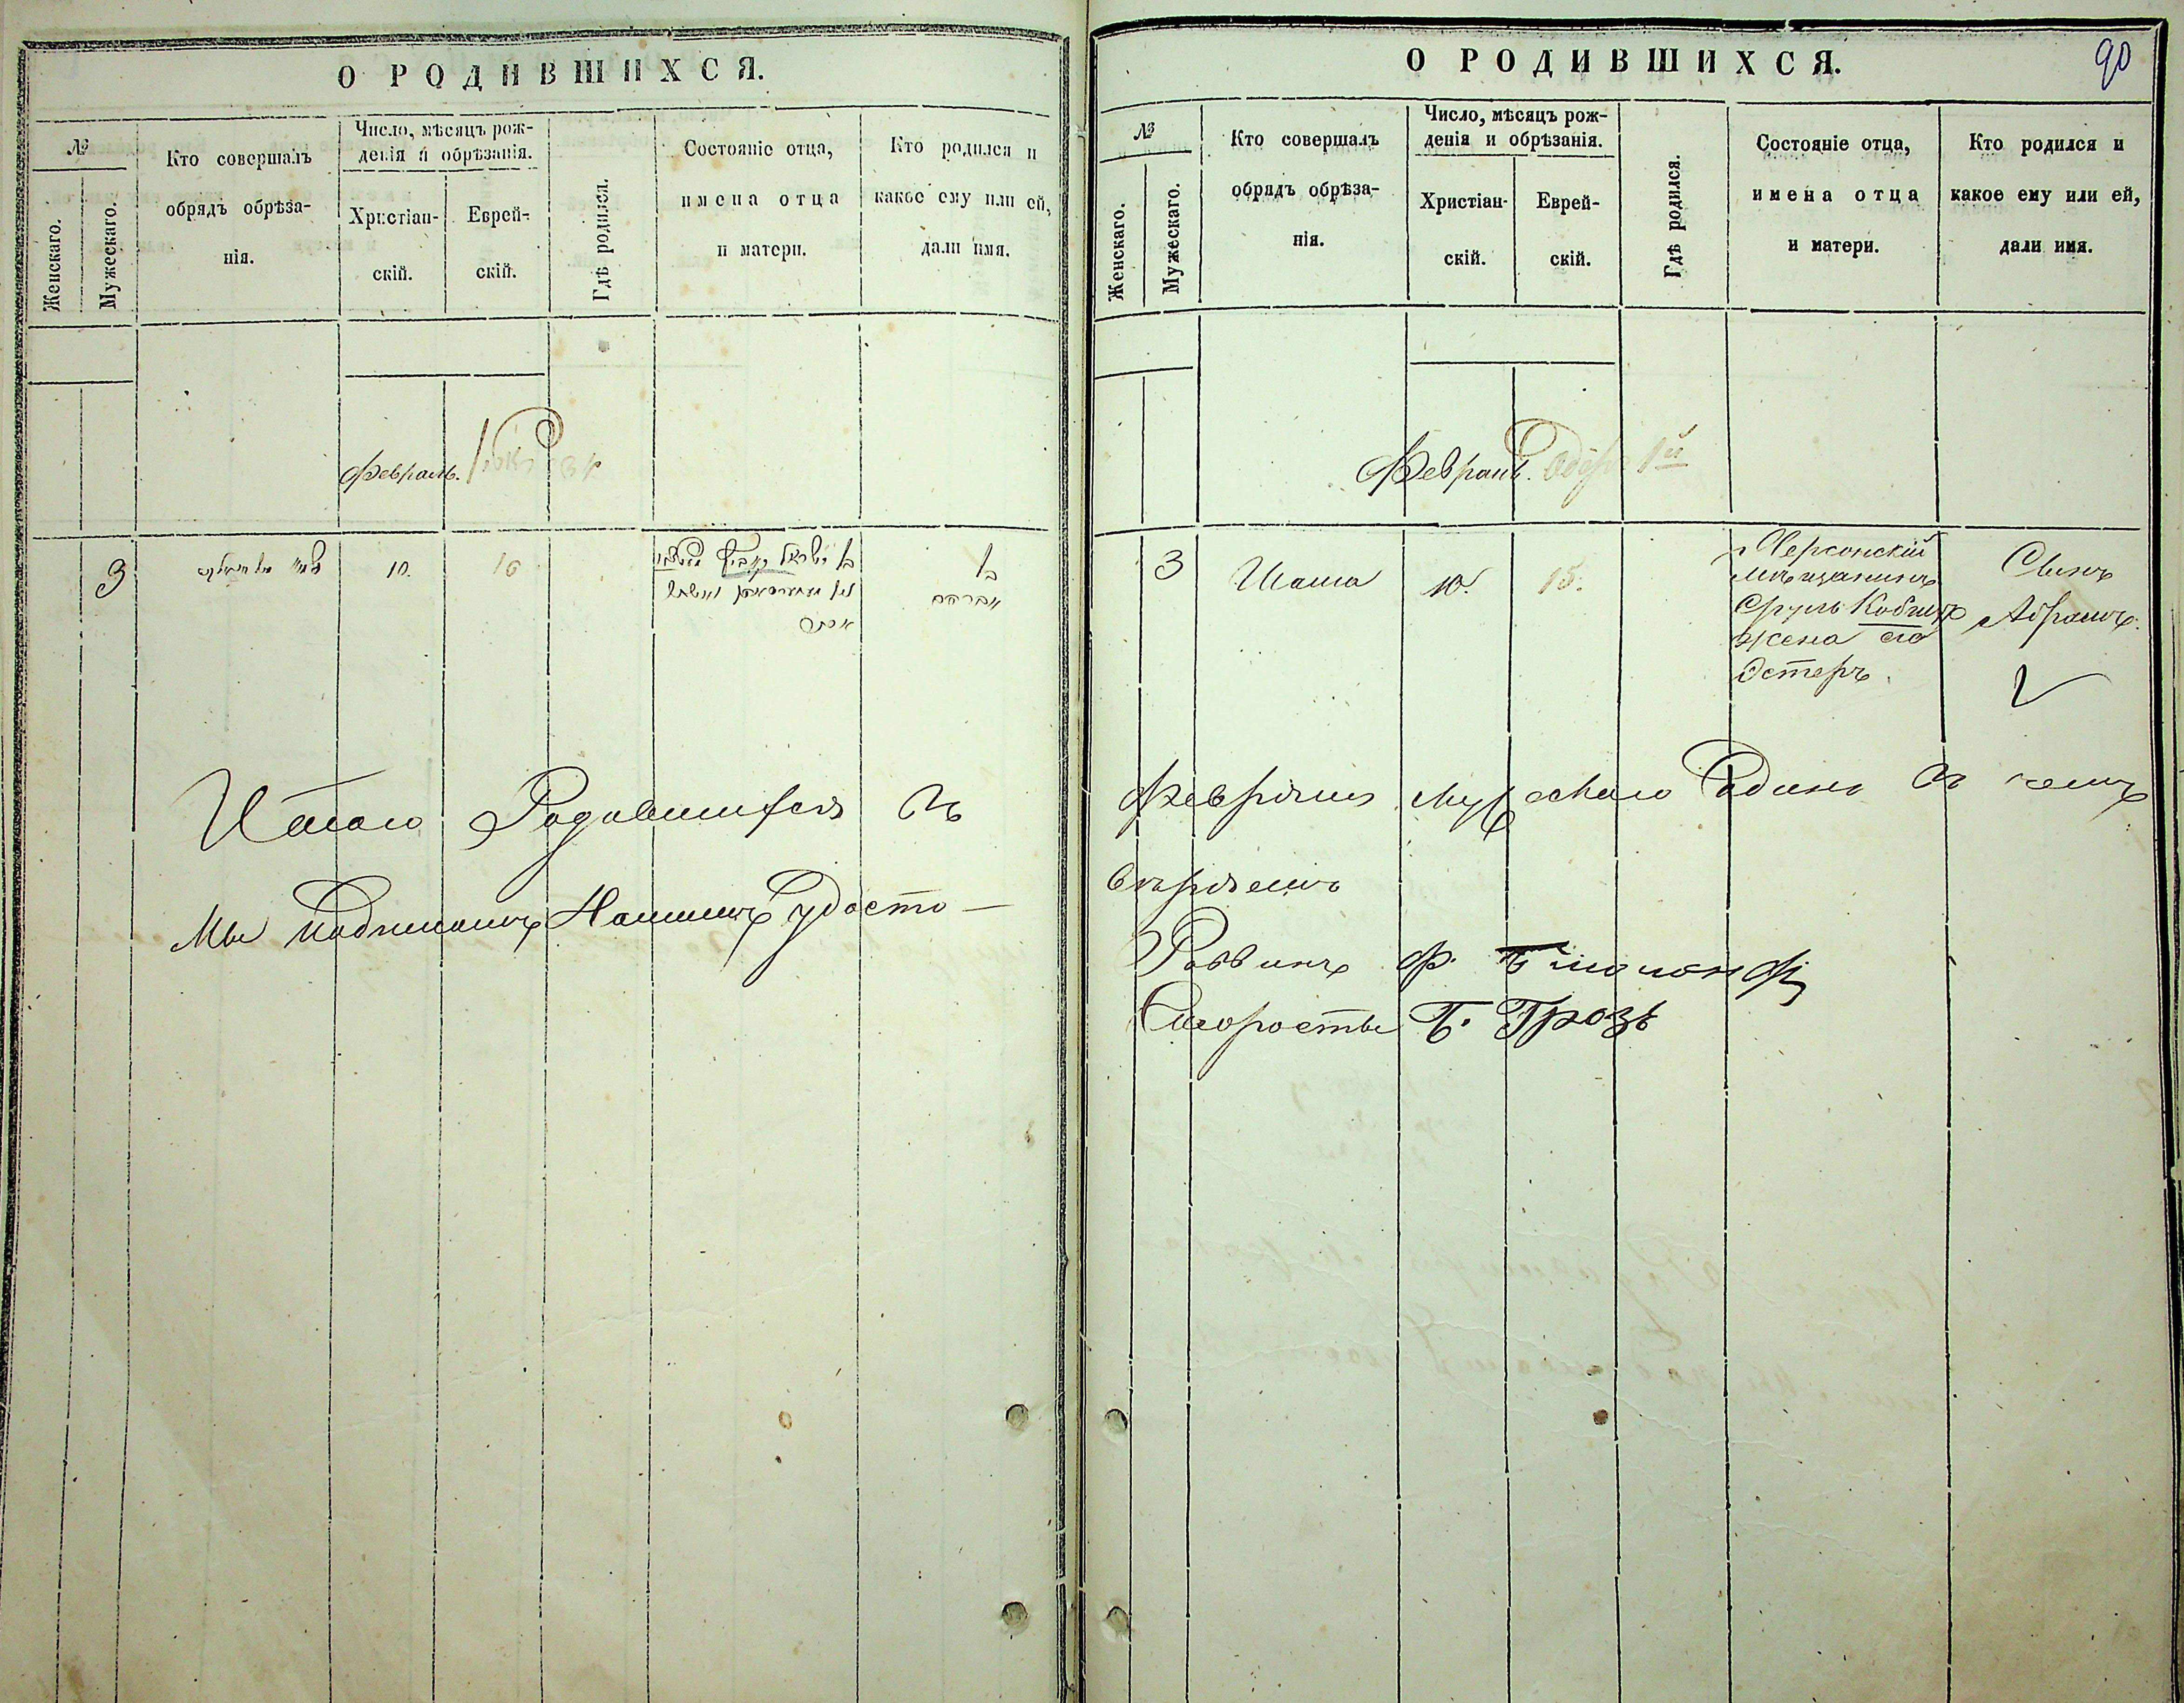 О РОДИВШИХСЯ.
№
Женскаго.
Мужескаго.
Кто совершалъ
обрядъ обрѣза-
нія.
Число, мѣсяцъ рож-
денія и обрѣзанія.
Христіан-
скій.
Еврей-
скій.
Гдѣ родился.
Состояніе отца,
имена отца
и матери.
Кто родился и
какое ему или ей,
дали имя.
Февраль.
3
10.
בן
אברהם
אסתר
Итого Родившихся въ
Мы подписомъ Нашимъ удосто—
90
О РОДИВШИХСЯ.
№
Женскаго.
Мужескаго.
Кто совершалъ
обрядъ обрѣза-
нія.
Число, мѣсяцъ рож-
денія и обрѣзанія.
Христіан-
скій.
Еврей-
скій.
Гдѣ родился.
Состояніе отца,
имена отца
и матери.
Кто родился и
какое ему или ей,
дали имя.
Февраль. Одеръ 1й
3
Шама
10.
15.
Херсонскій
мѣщанинъ
Сруль
жена его
Эстеръ.
Сынъ
Абрамъ.
Февралѣ Мужескаго Одинъ въ чемъ
вѣряемъ
Раввинъ Ф.
Старосты Б. Грозъ